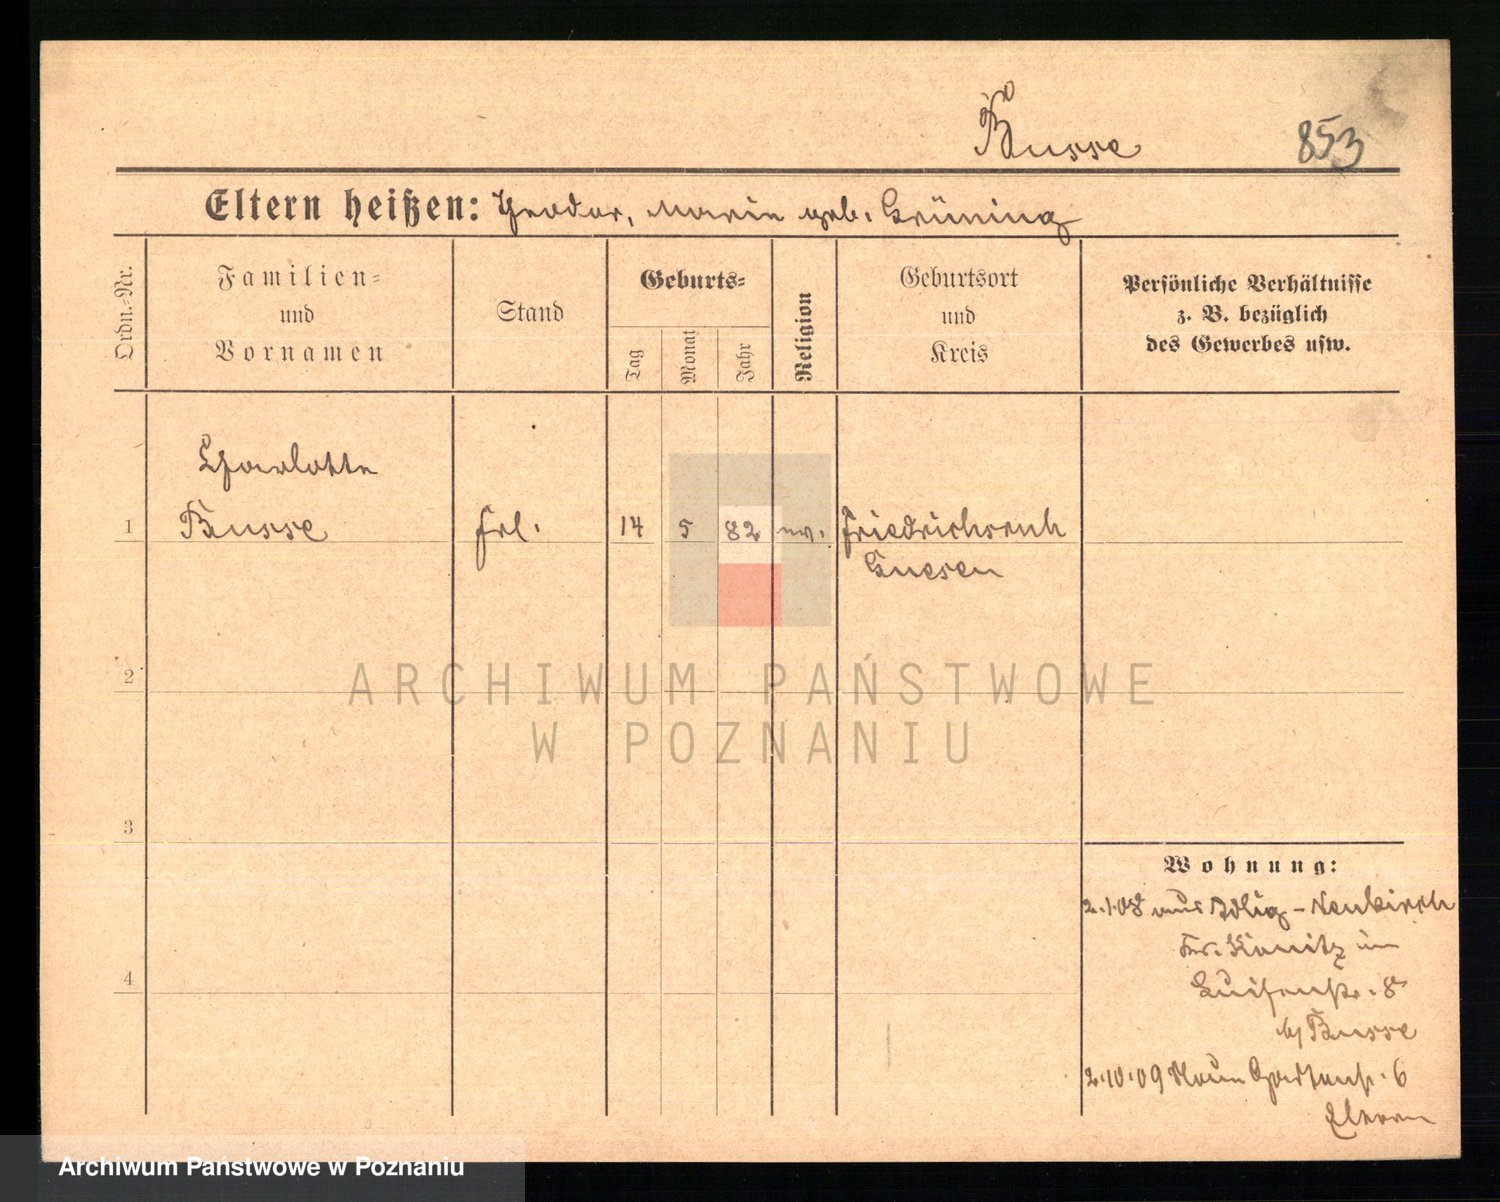 Busse
853
Eltern heißen: Theodor, Marie geb. Grüning
Ordn.-Nr.
Familien-
und
Vornamen
Stand
Geburts-
Tag
Monat
Jahr
Religion
Geburtsort
und
Kreis
Persönliche Verhältnisse
z. B. bezüglich
des Gewerbes usw.
Charlotte
1 Busse Frl. 14 5 82 ev. Friedrichsruh
Gnesen
2
ARCHIWUM PAŃSTWOWE
W POZNANIU
3
Wohnung:
2.1.08 aus Adlig-Neukirch
Kr. Konitz in
4
Luisenstr. 8
b/ Busse
2.10.09 Neue Gartenstr. 6
Eltern
Archiwum Państwowe w Poznaniu